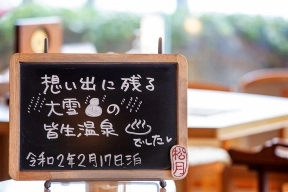 想い出に残る
大雪の
皆生温泉
でした
令和2年2月17日泊
松月